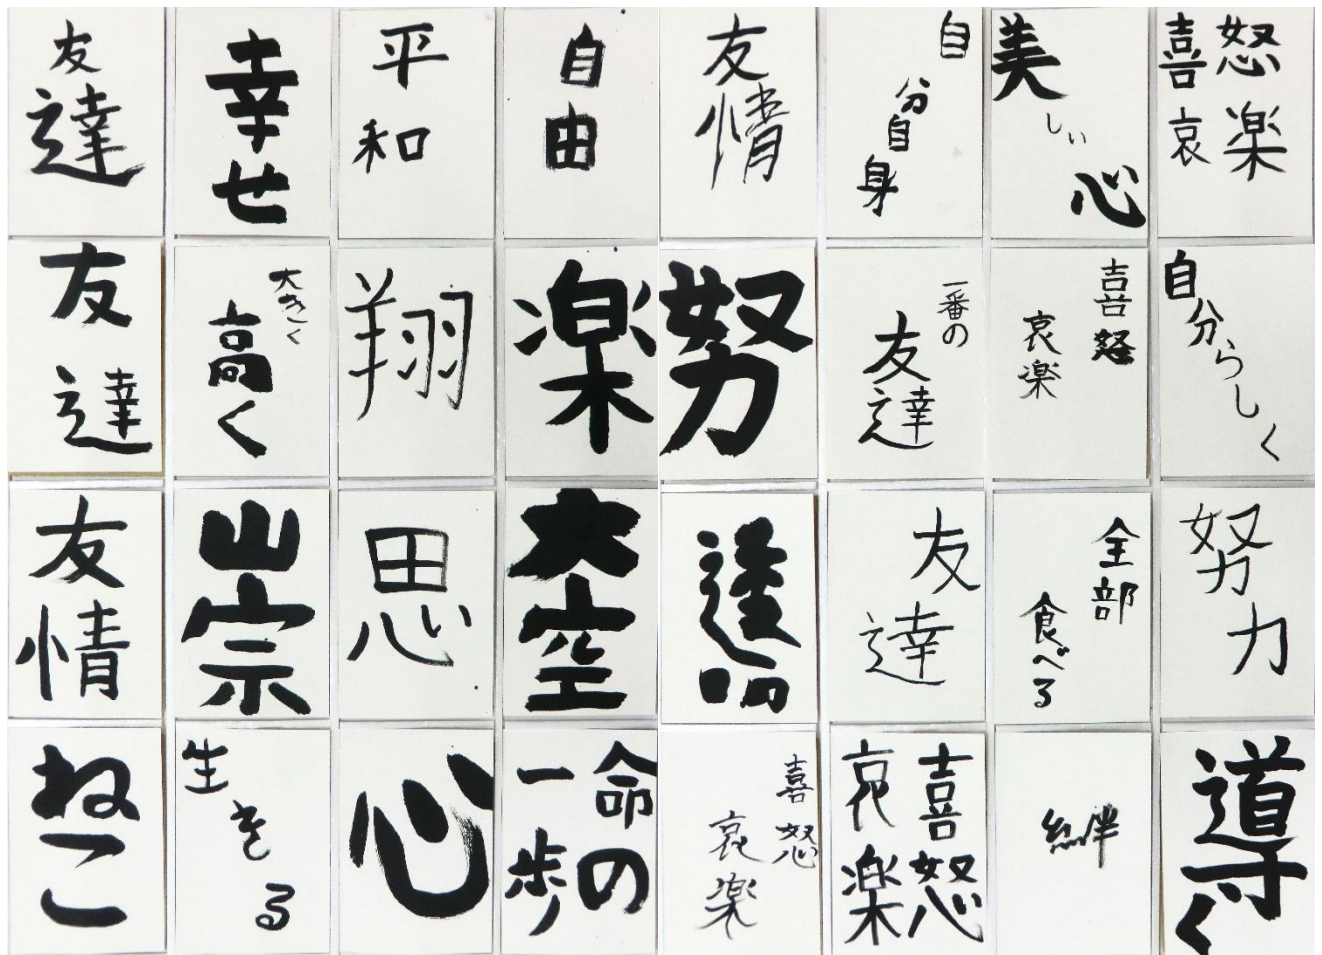 友達
幸せ
平和
自由
友情
自分自身
美しい心
喜怒哀楽
友達
大きく
高く
翔
楽
努
一番の
友達
喜怒
哀楽
自分らしく
友情
崇
思
大空
友達
全部
食べる
努力
ねこ
生きる
心
命の
一歩
喜怒
哀楽
喜怒
哀楽
絆
導く